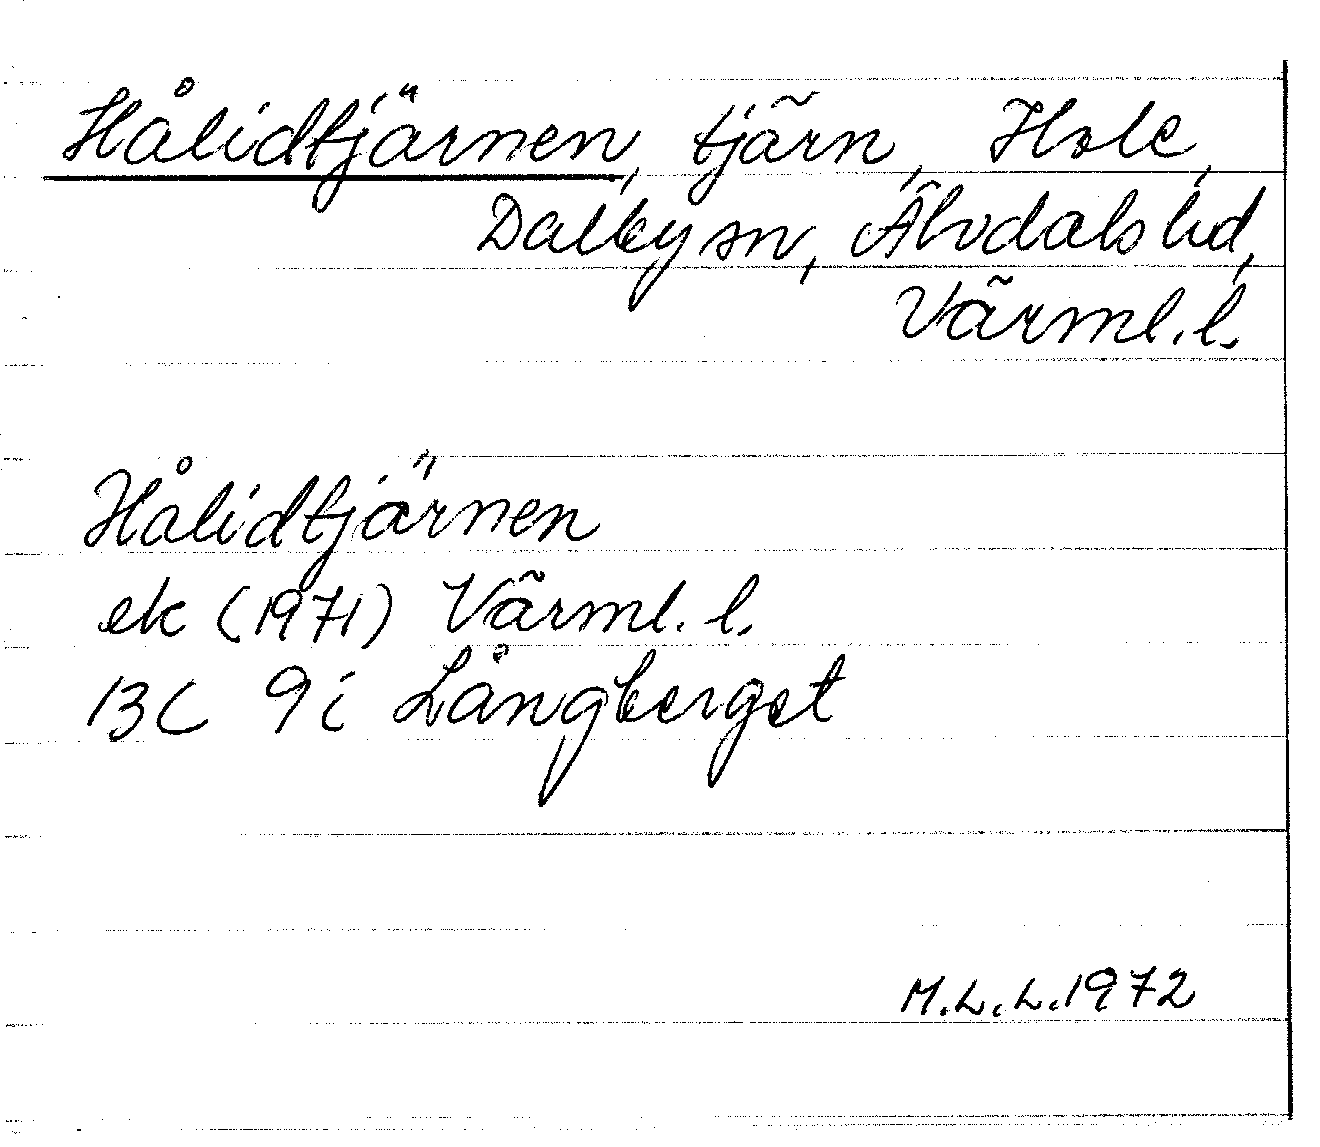 Hålidtjärnen, tjärn, Hole,
Dalby sn, Älvdals hd,
Värml. l.
Hålidtjärnen
ek (1971) Värml. l.
13C 9i Långberget
M.L.L. 1972